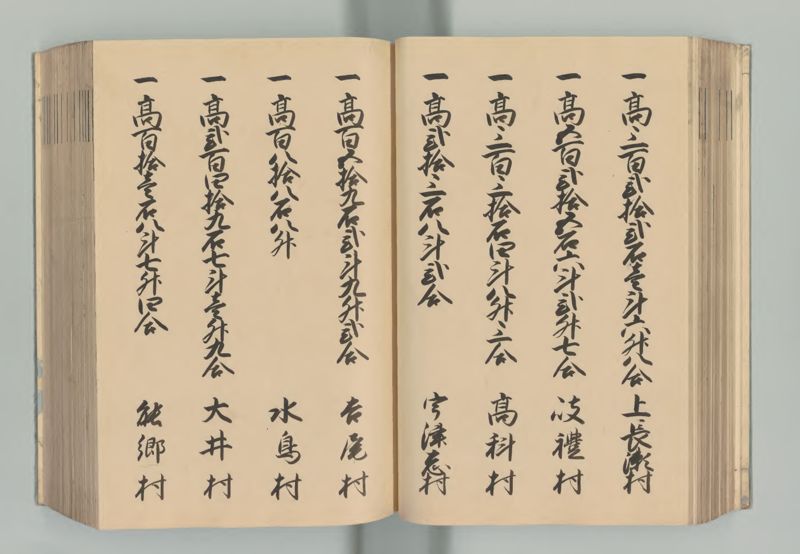 一高三百弐拾弐石壱斗六升八合 上長瀬村
一高五百弐拾五石六斗弐升七合 岐禮村
一高三百三拾石四斗八升三合 高科村
一高弐拾三石八斗弐合 宇津志村
一高百五拾九石弐斗九升弐合 吉尾村
一高百八拾八石八升 水鳥村
一高弐百四拾九石七斗壱升九合 大井村
一高百拾壱石八斗七升四合 能郷村